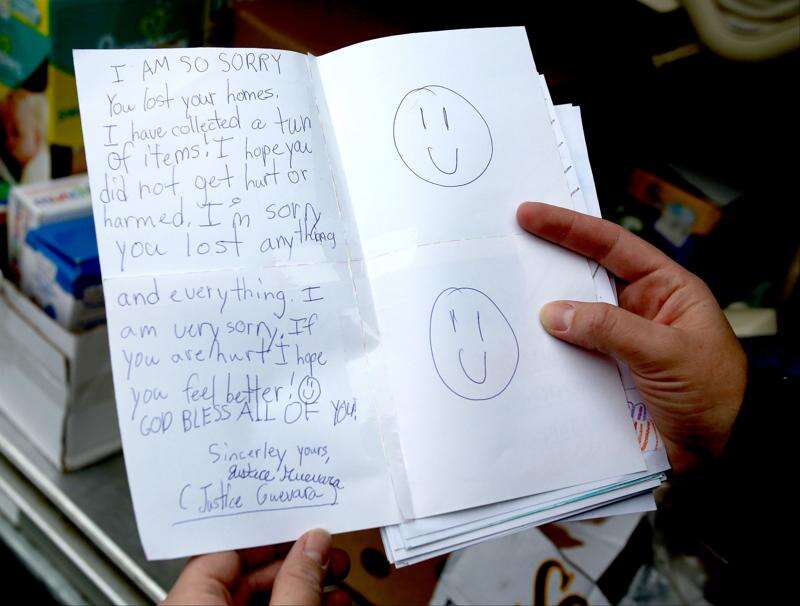 I AM SO SORRY
You lost your homes.
I have collected a tun
of items! I hope you
did not get hurt or
harmed. I'm sorry
you lost anything
and everything. I
am very sorry. If
you are hurt I hope
you feel better!
GOD BLESS All OF YOU!
Sincerley yours,
Justice Guevara
(Justice Guevara)